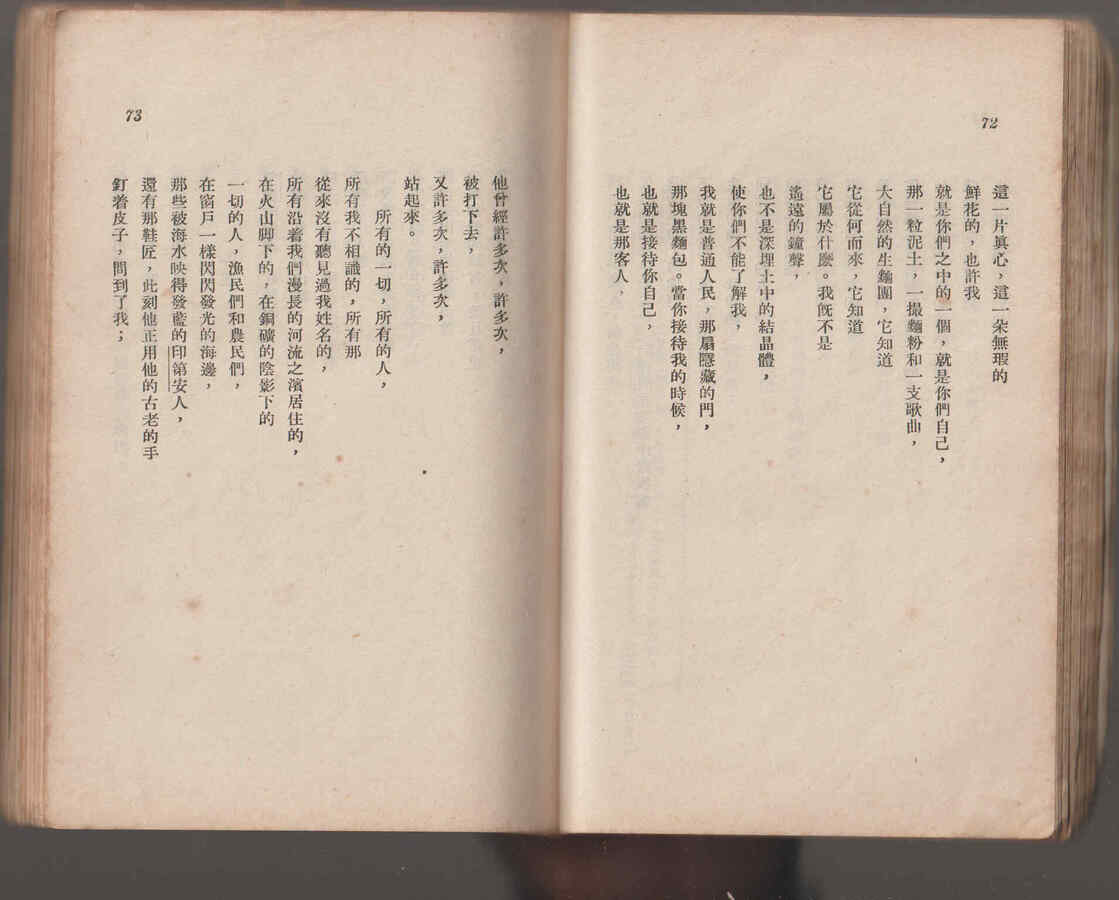 72
這一片眞心，這一朵無瑕的
鮮花的，也許我
就是你們之中的一個，就是你們自己，
那一粒泥土，一撮麵粉和一支歌曲，
大自然的生麵團，它知道
它從何而來，它知道
它屬於什麼。我旣不是
遙遠的鐘聲，
也不是深埋土中的結晶體，
使你們不能了解我，
我就是普通人民，那扇隱藏的門，
那塊黑麵包。當你接待我的時候，
也就是接待你自己，
也就是那客人，
73
他曾經許多次，許多次，
被打下去，
又許多次，許多次，
站起來。
所有的一切，所有的人，
所有我不相識的，所有那
從來沒有聽見過我姓名的，
所有沿着我們漫長的河流之濱居住的，
在火山脚下的，在銅礦的陰影下的
一切的人，漁民們和農民們，
在窗戶一樣閃閃發光的海邊，
那些被海水映得發藍的印第安人，
還有那鞋匠，此刻他正用他的古老的手
釘着皮子，問到了我；